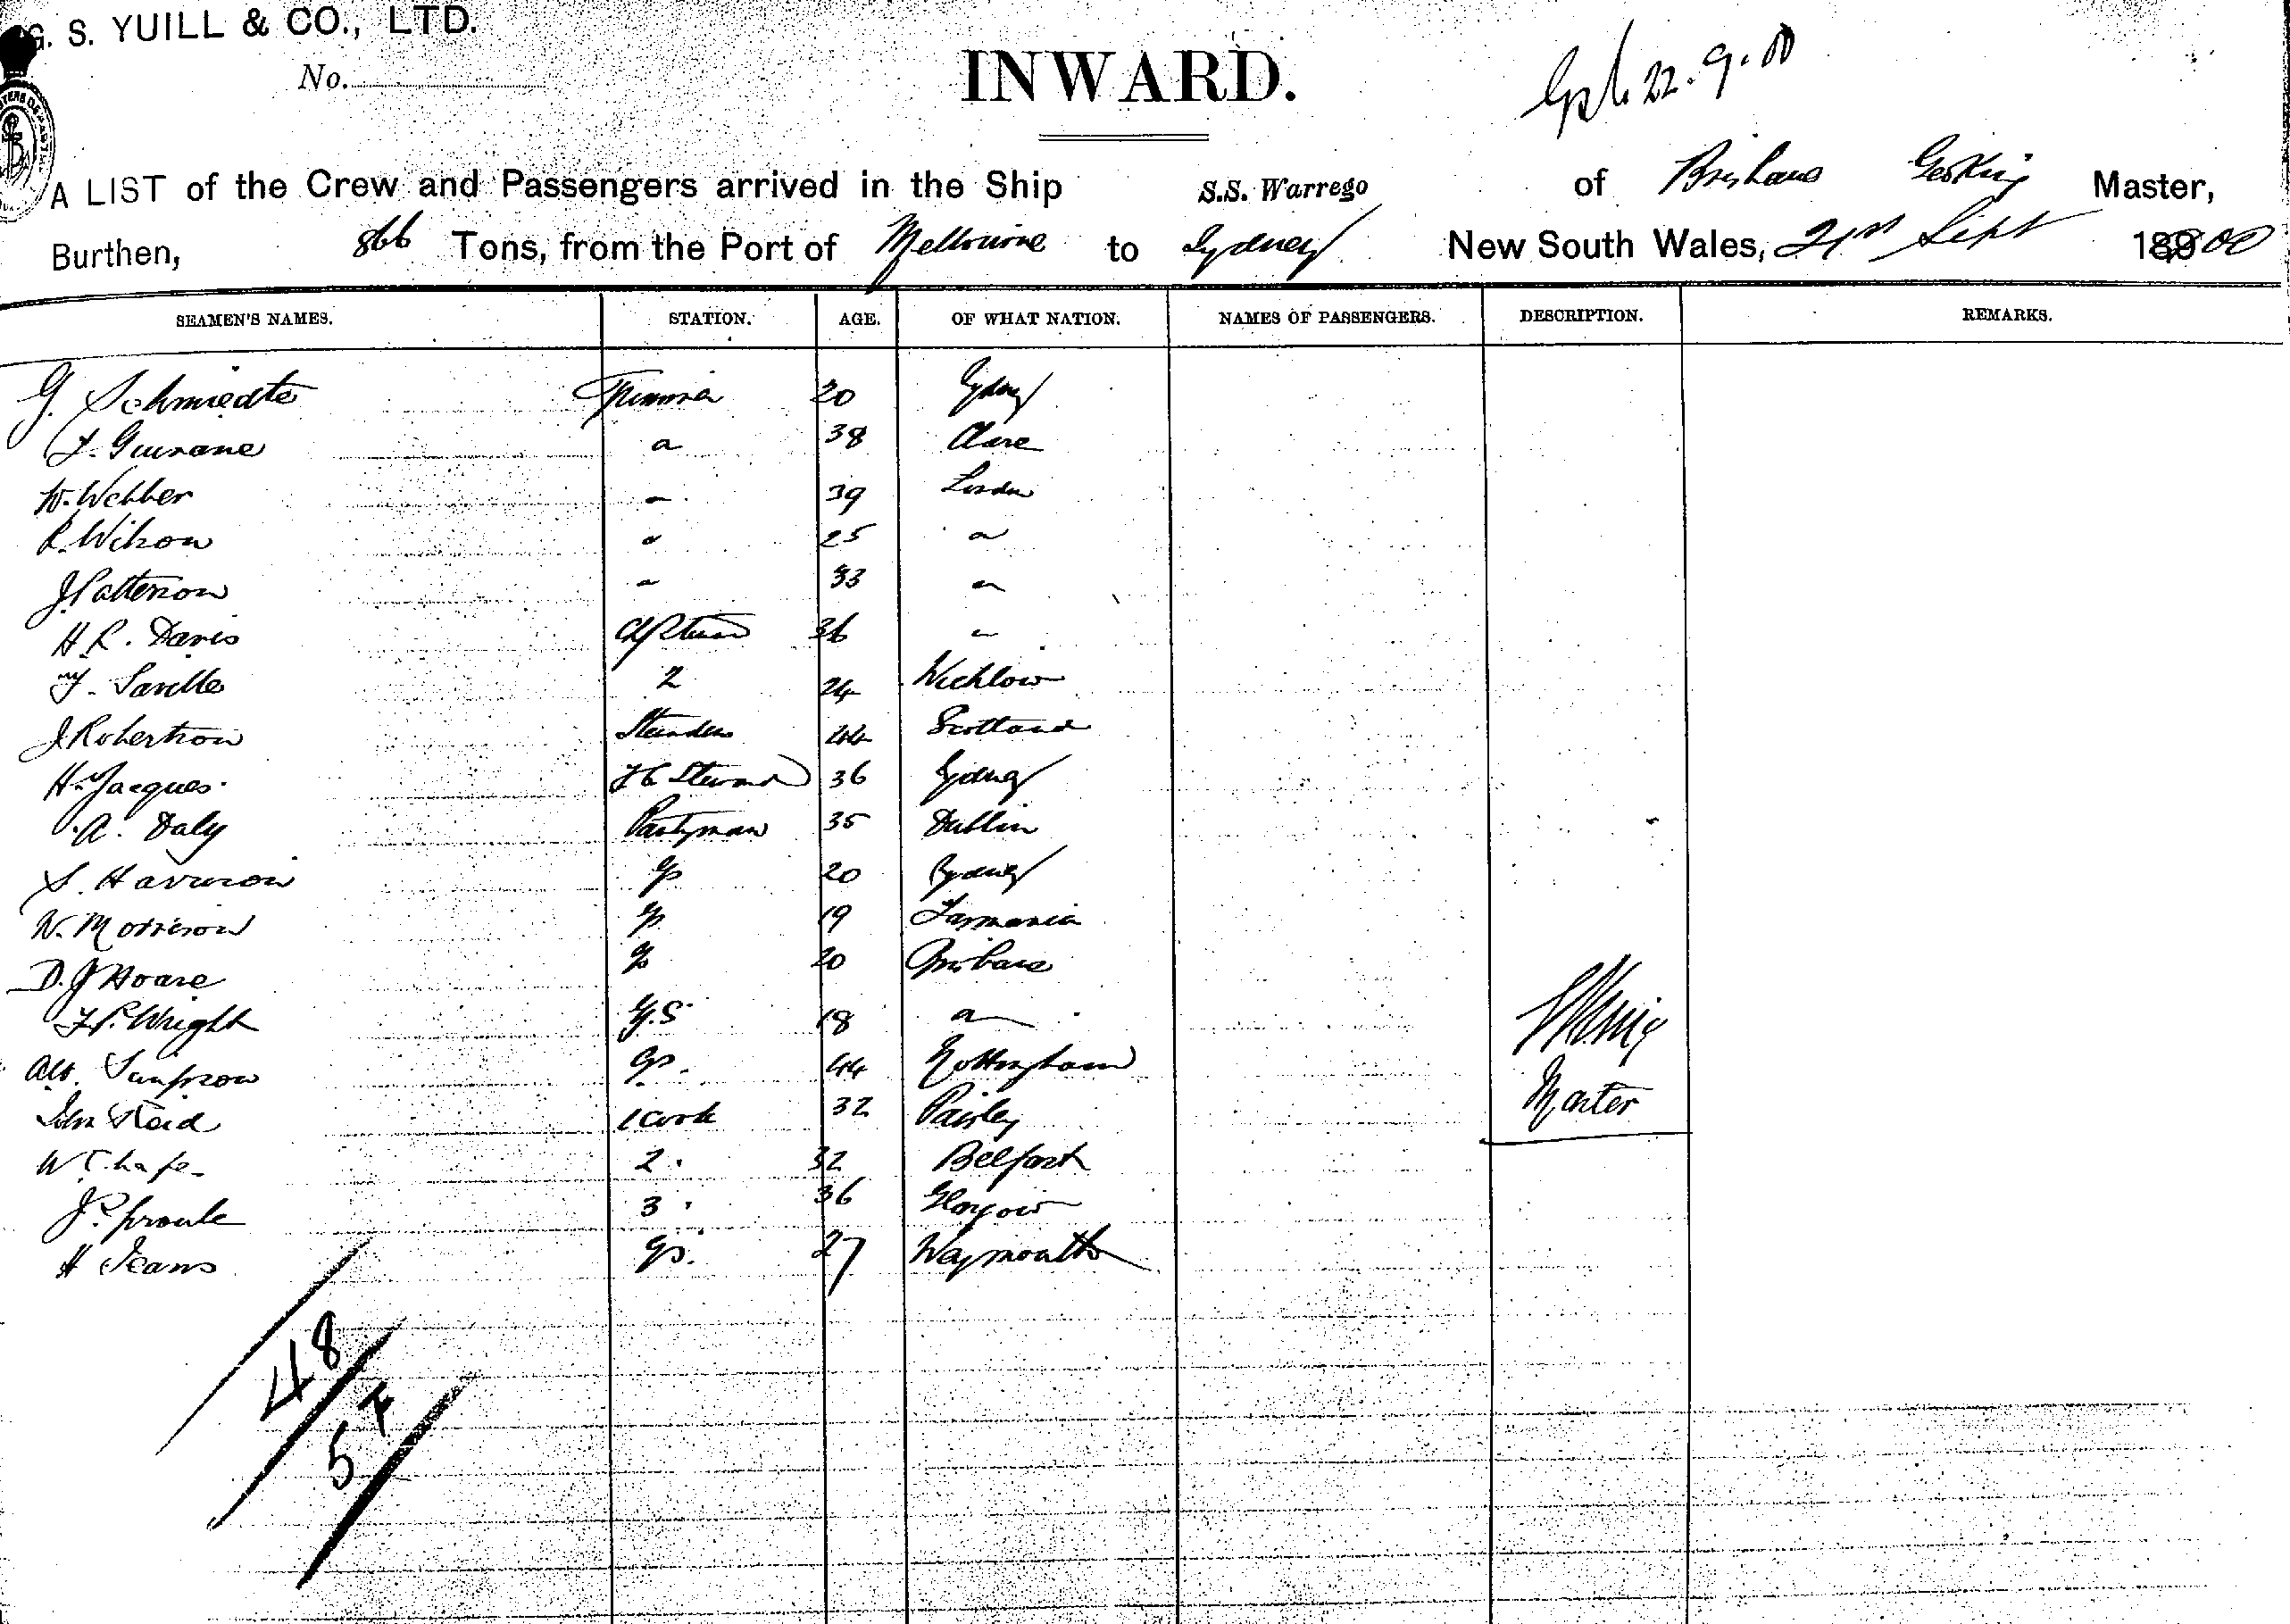 G. S. YUILL & CO., LTD.
No.
INWARD.
22.9.00
A LIST of the Crew and Passengers arrived in the Ship S.S. Warrego of Brisbane Geo King Master,
Burthen, 866 Tons, from the Port of Melbourne to Sydney New South Wales, 21st Sept 1900
SEAMEN'S NAMES. STATION. AGE. OF WHAT NATION. NAMES OF PASSENGERS. DESCRIPTION. REMARKS.
G. Schmiedte Trimmer 20 Sydney
T. Guinane " 38 Clare
W. Webber " 39 London
R. Wilson " 25 "
J. Patterson " 33 "
H. R. Davis 36 "
Saville 2 24 Wicklow
J Robertson 44 Scotland
H. Jacques Steward 36 Sydney
A. Daly Pantryman 35 Dublin
S. Harrison 20 Sydney
W. Morrison 19 Tasmania
D. J Hoare 20 Brisbane
F. P. Wright G.S 18 "
Alb. Sampson GS. 44 Nottingham
John Reid 1 Cook 32 Paisley
W Chafe 2 " 32 Belfast
J. Sproule 3 " 36 Glasgow
H Jeans GS. 27 Weymouth
Master
48
57